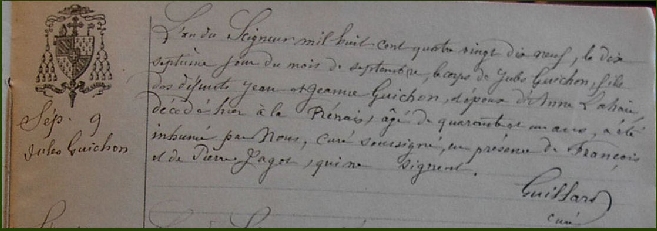 Sep. 9
Jules Guichon
L'an du Seigneur mil huit cent quatre vingt dix neuf, le dix
septième jour du mois de septembre, le corps de Jules Guichon, fils
des défunts Jean et Jeanne Guichon, époux d'Anne Lahaie
décédé hier à la Prénais, âgé de quarante et un ans, a été
inhumé par Nous, curé soussigné, en présence de François
et de Pierre Jagot, qui ne signent.
Guillard
curé